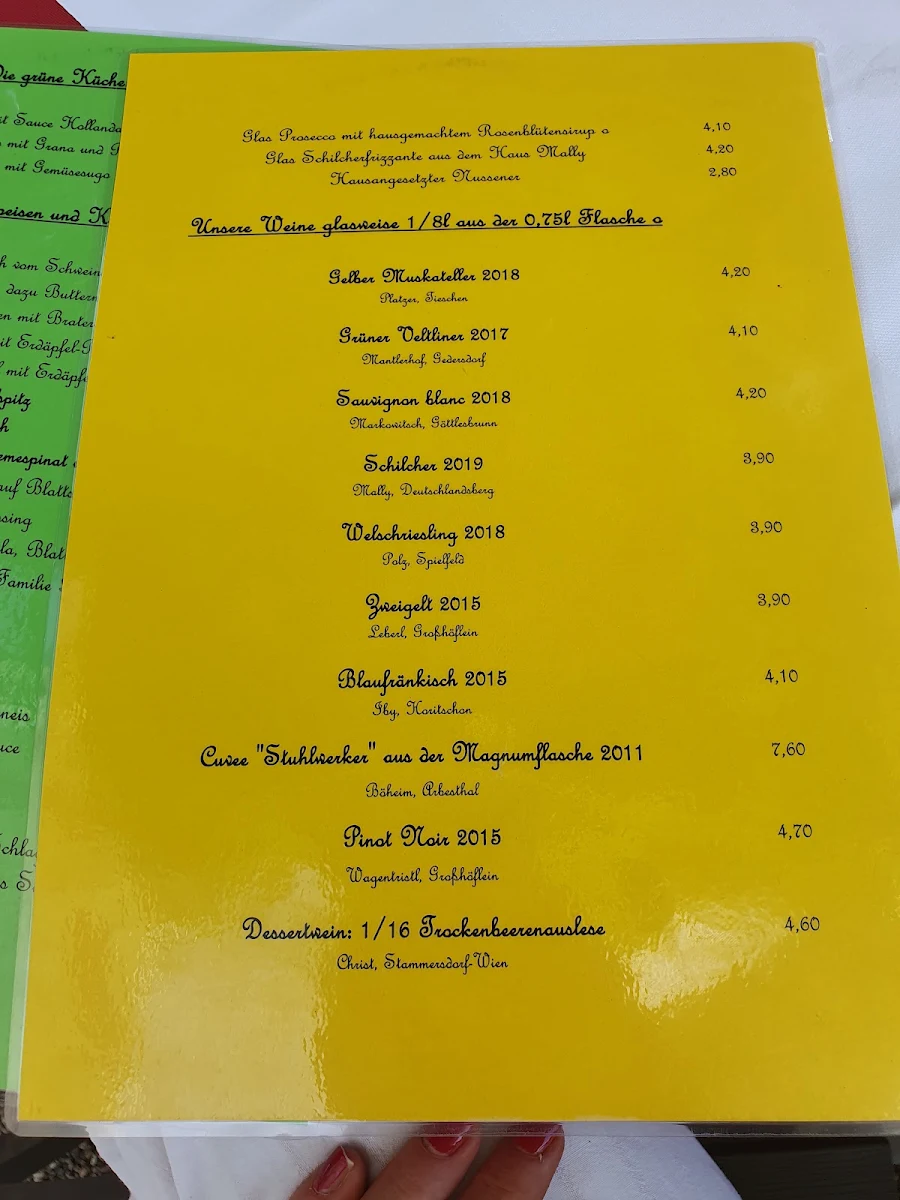 Die grüne Küche
mit Grana und
mit Gemüsesugo
peisen und K
h vom Schwein
dazu Buttern
en mit Brater
it Erdäpfel-
mit Erdäpfe
spitz
h
emespinat
auf Blatts
ssing
la, Blat
Familie
neis
uce
Glas Prosecco mit hausgemachtem Rosenblütensirup o 4,10
Glas Schilcherfrizzante aus dem Haus Mally 4,20
Hausangesetzter Nussener 2,80
Unsere Weine glasweise 1/8l aus der 0,75l Flasche o
Gelber Muskateller 2018 4,20
Platzer, Tieschen
Grüner Veltliner 2017 4,10
Mantlerhof, Gedersdorf
Sauvignon blanc 2018 4,20
Markowitsch, Göttlesbrunn
Schilcher 2019 3,90
Mally, Deutschlandsberg
Welschriesling 2018 3,90
Polz, Spielfeld
Zweigelt 2015 3,90
Leberl, Großhöflein
Blaufränkisch 2015 4,10
Iby, Horitschon
Cuvee "Stuhlwerker" aus der Magnumflasche 2011 7,60
Böheim, Arbesthal
Pinot Noir 2015 4,70
Wagentristl, Großhöflein
Dessertwein: 1/16 Trockenbeerenauslese 4,60
Christ, Stammersdorf-Wien